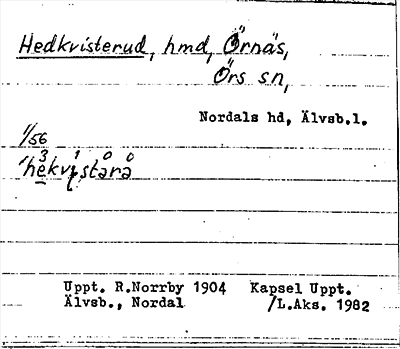 Hedkvisterud, hmd, Örnäs,
Örs sn,
Nordals hd, Älvsb.l.
1/56
Uppt. R.Norrby 1904 Kapsel Uppt.
Älvsb., Nordal /L.Aks. 1982